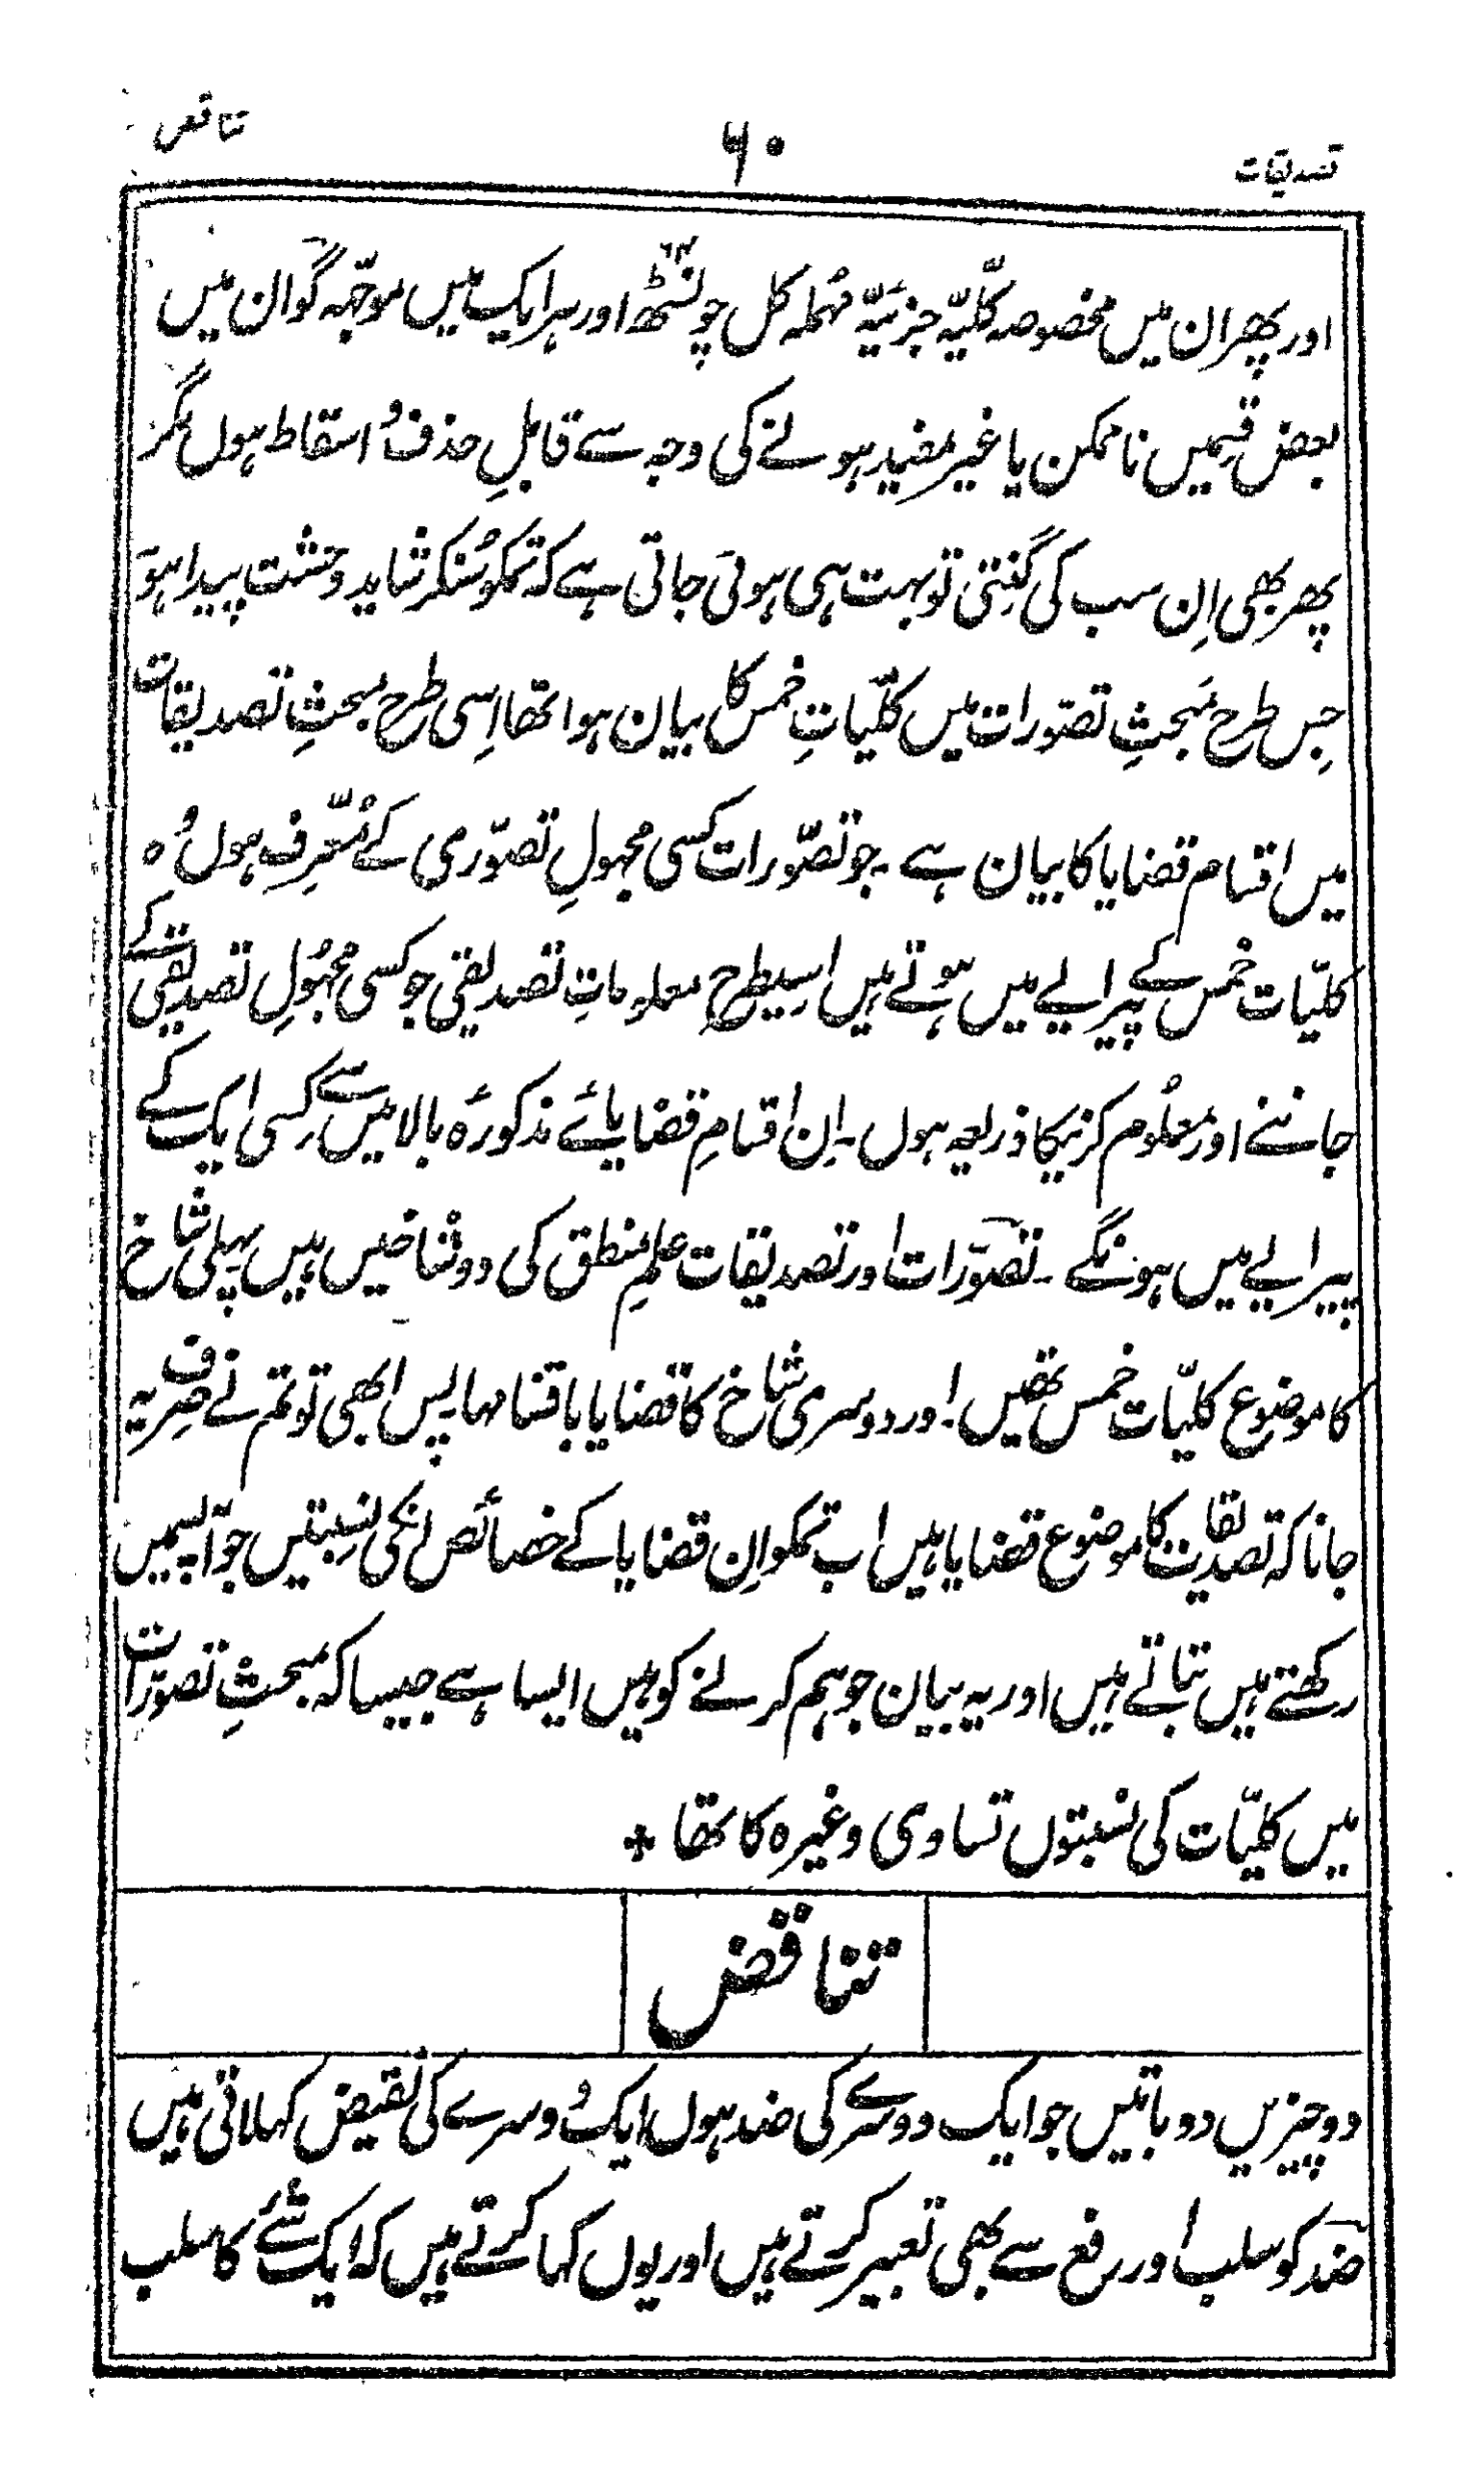 تصدیقات
۶۰
تناقض
اور پھر ان میں مخصوصہ کلّیہ جزئیّہ مُہملہ کل چونسٹھ ۶۴ اور ہر ایک میں موجّہہ گو ان میں
بعض قسِمیں ناممکن یا غیر مفید ہونے کی وجہ سے قابلِ حذف و اسقاط ہوں مگر
پھر بھی اِن سب کی گنتی تو بہت ہی ہوئی جاتی ہے کہ تمکو سُنکر شاید وحشت پیدا ہو
جِس طرح مَبحثِ تصوّرات میں کلّیاتِ خمس کا بیان ہوا تھا اِسی طرح مبحثِ تصدیقات
میں اقسام قضایا کا بیان ہے ۔ جو تصّورات کسی مجہولِ تصوّری کے مُعّرِف ہوں وُہ
کلیّات خمس کے پیرایے میں ہوتے ہیں اِسیطرح معلوماتِ تصدیقی جو کسی مجہُولِ تصدیقی کے
جاننے اور معلُوم کرنیکا ذریعہ ہوں ۔ اِن اقسامِ قضایائے مذکورۂ بالا میں سے کِسی ایک کے
پیرایے میں ہونگے ۔ تصوّرات اور تصدیقات علمِ منطق کی دو شاخیں ہیں پہلی شاخ
کا موضوع کلیّات خمس تھیں ۔ اور دوسری شاخ کا قضایا باقسامہا پس ابھی تو تم نے صرف یہ
جانا کہ تصدیقات کا موضوع قضایا ہیں اب تمکو اِن قضایا کے خصائص انکی نِسبتیں جو آپسمیں
رکھتے ہیں بتاتے ہیں اور یہ بیان جو ہم کرنے کو ہیں ایسا ہے جیسا کہ مبحثِ تصوّرات
میں کلیّات کی نسبتوں تساوی وغیرہ کا تھا *
تناقض
دو چیزیں دو باتیں جو ایک دوسرے کی ضد ہوں ایک دوسرے کی نقیض کہلاتی ہیں
ضد کو سلب اور رفع سے بھی تعبیر کرتے ہیں اور یوں کہا کرتے ہیں کہ ایک شئے کا سلب